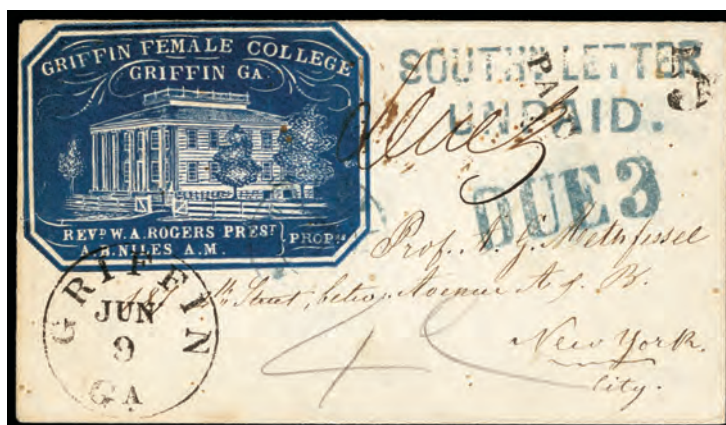 GRIFFIN FEMALE COLLEGE
GRIFFIN GA.
REVD W. A. ROGERS PREST
A. B. NILES A. M.
PROPRS
SOUTHN. LETTER
UNPAID.
PAID
5
Due 3
DUE 3
Prof. A. G. Methfessel
Street, betw. Avenue A & B.
New York.
City.
GRIFFIN
JUN
9
GA